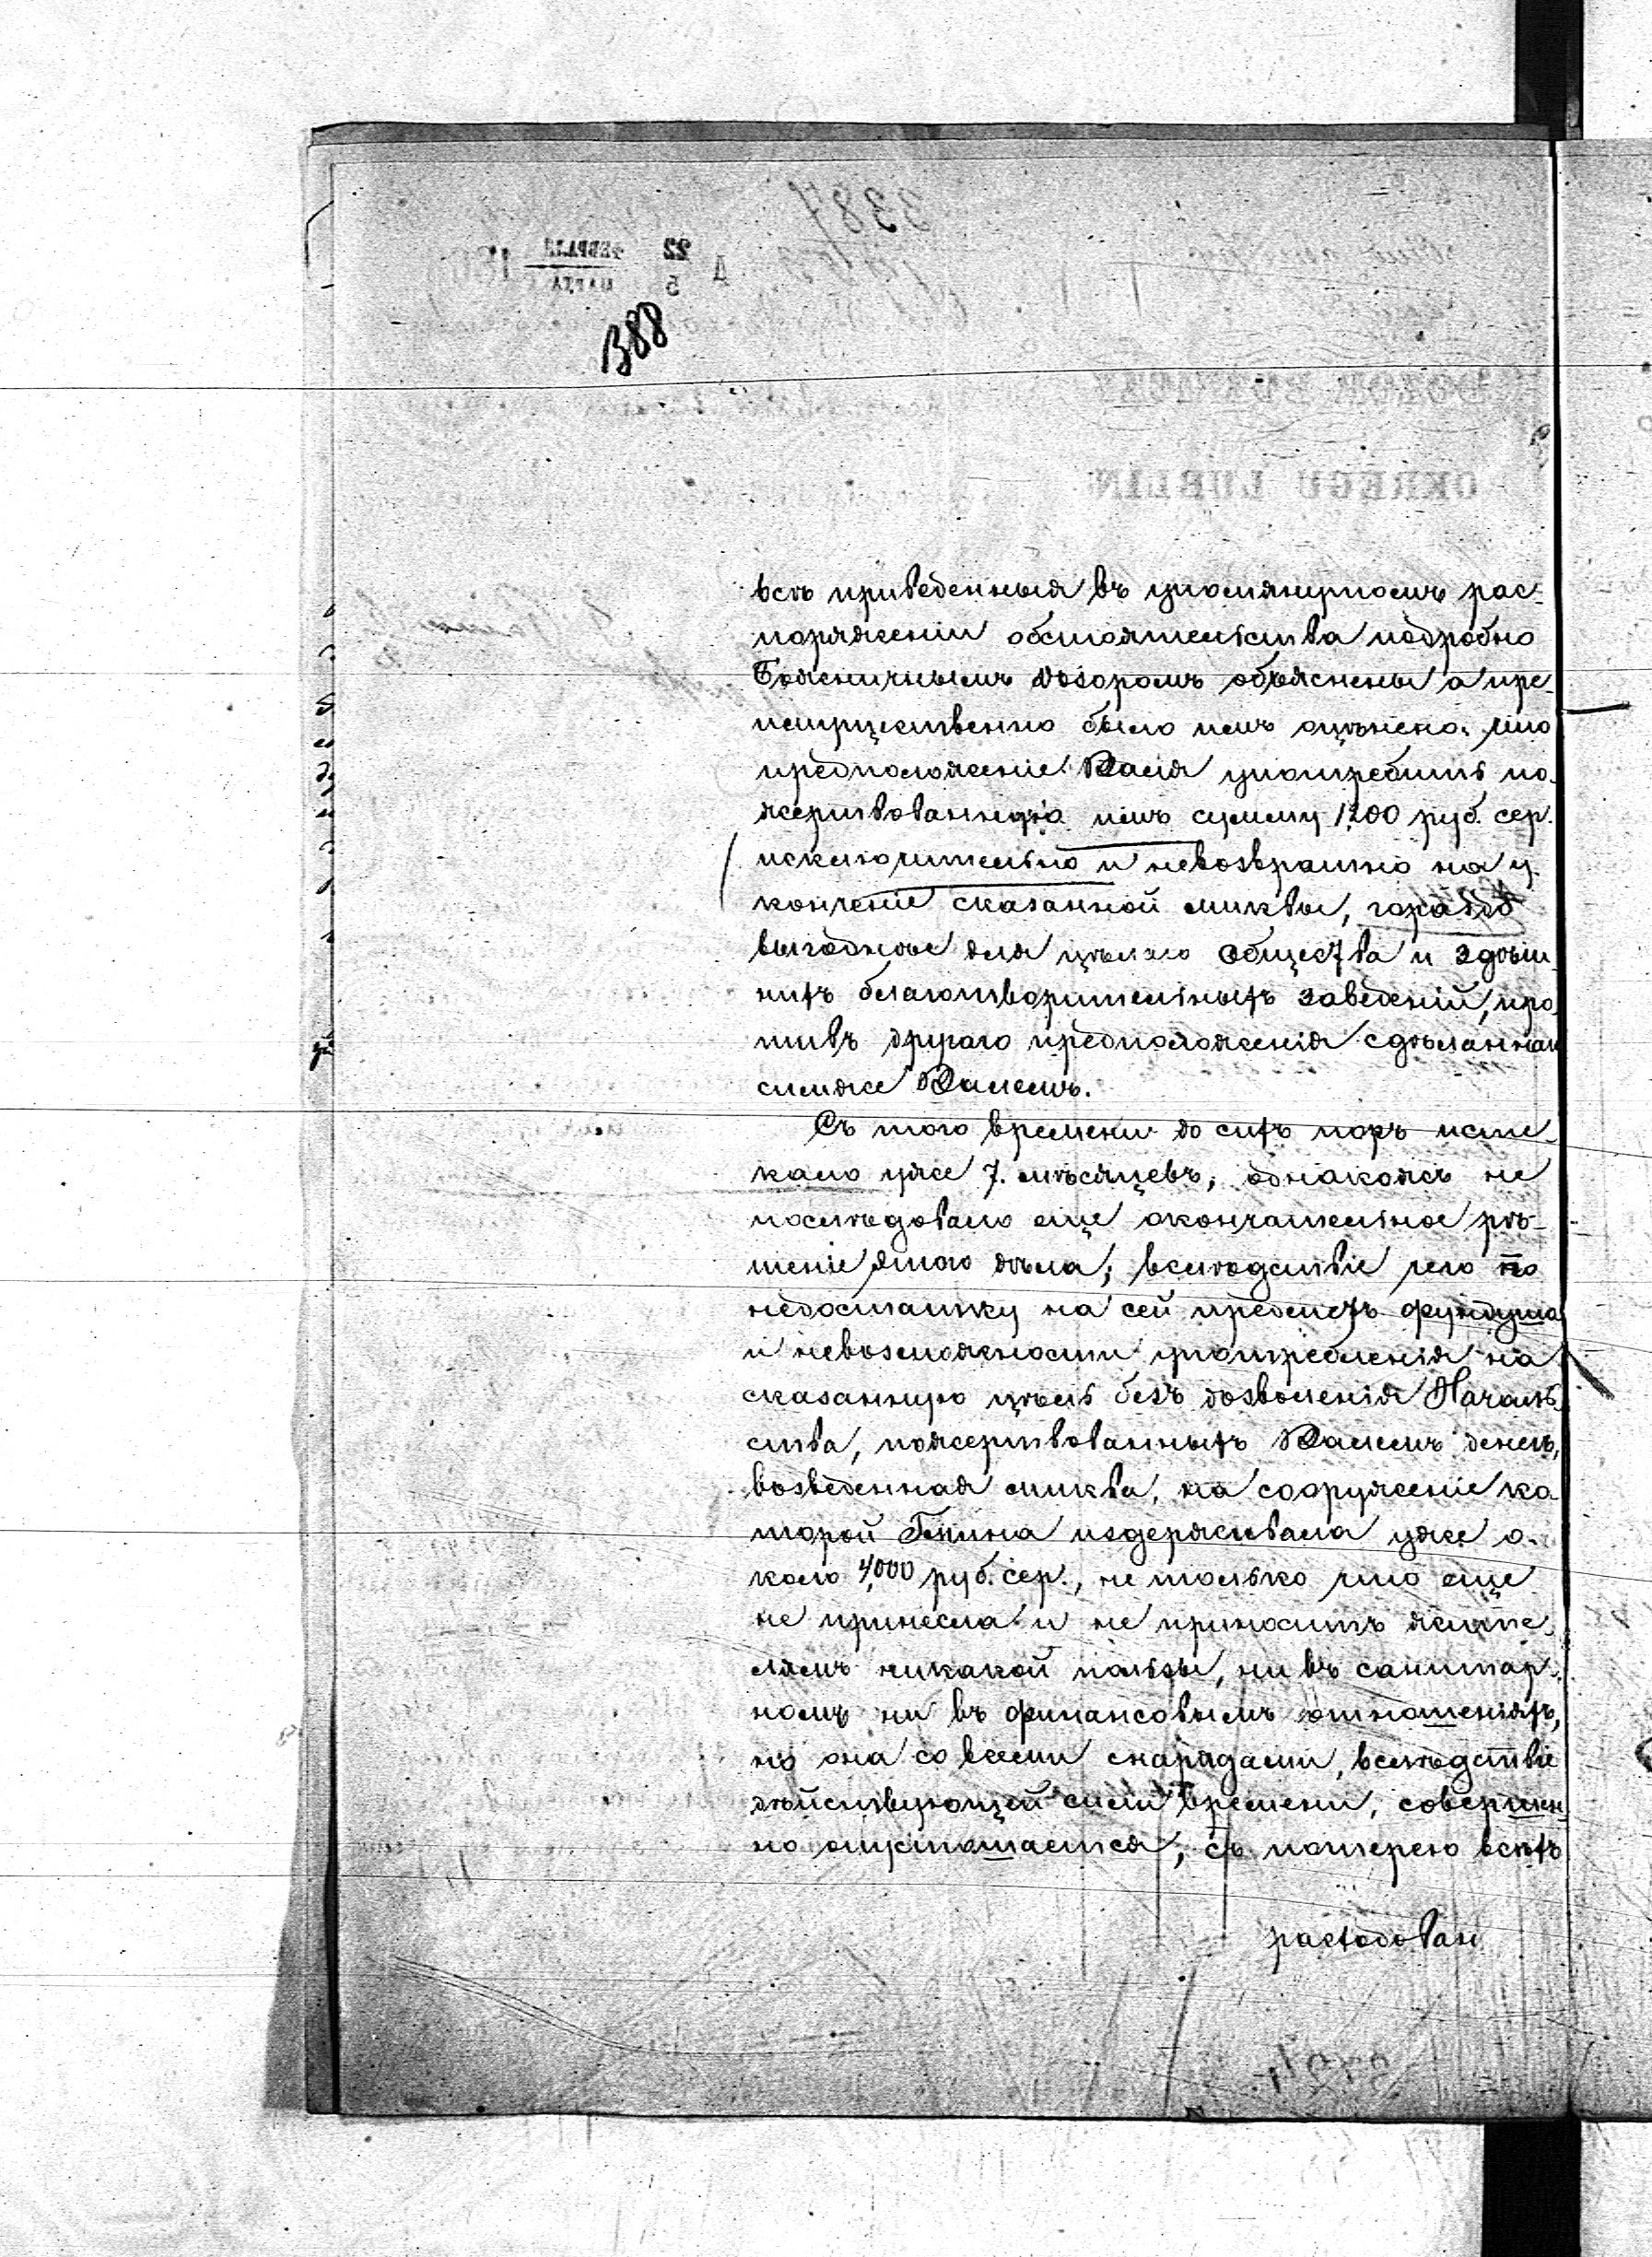 388
всѣ приведенныя въ упомянутомъ рас-
поряженіи обстоятельства подробно
Божничнымъ Дозоромъ объяснены а пре-
имущественно было имъ оцѣнено, что
предположеніе Валя употребить по-
жертвованную имъ сумму 1200 руб. сер.
исключительно и невозвратно на у-
конченіе сказанной миквы, гораздо
выгоднѣе для цѣлаго общества и здѣш-
нихъ благотворительныхъ заведеній, про-
тивъ другаго предположенія сдѣланнаго
симже Валемъ.
Съ того времени до сихъ поръ исте-
кало уже 7. мѣсяцевъ, однакожъ не
послѣдовало еще окончательное рѣ-
шеніе этого дѣла; вслѣдствіе чего по
недостатку на сей предметъ фундуша
и невозможности употребленія на
сказанную цѣль безъ дозволенія Началь-
ства, пожертвованныхъ Валемъ денегъ,
возведенная миква, на сооруженіе ко-
торой Гмина издерживала уже о-
коло 4,000 руб. сер., не только что еще
не принесла и не приноситъ жите-
лямъ никакой пользы, ни въ санитар-
номъ ни въ финансовымъ отношеніяхъ,
но она со всеми снарядами, вслѣдствіе
дѣйствующей силы времени, совершен-
но опустошается, съ потерею всѣхъ
расходован